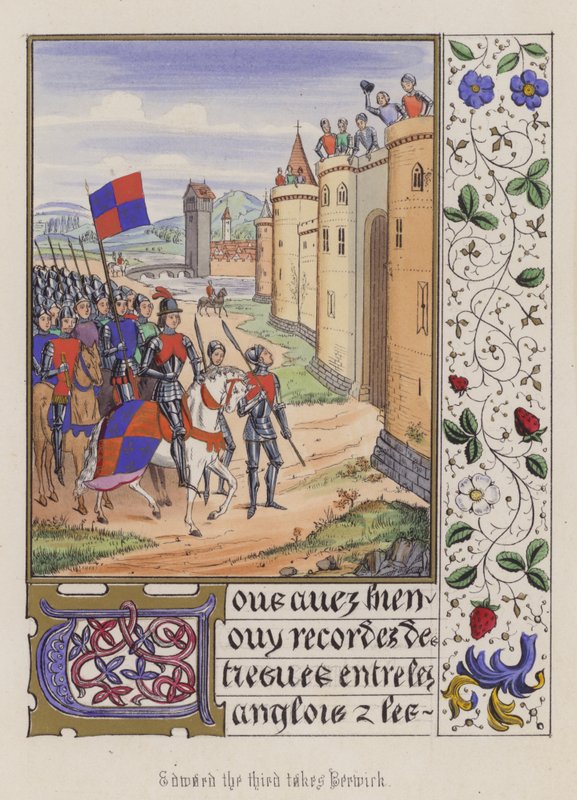 Vous auez bien
ouy recordez des
treues entre les
anglois 2 les~
Edward the third takes Berwick.